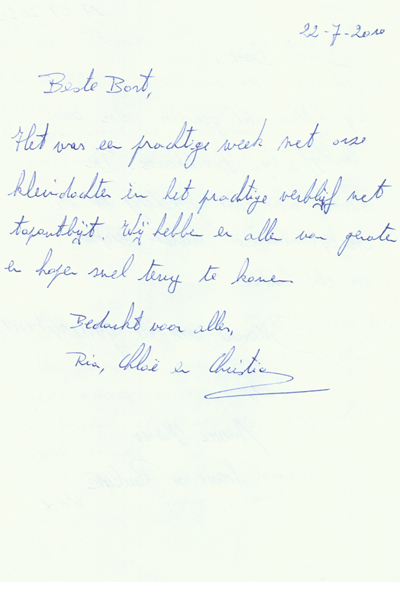 22-7-2010
Beste Bart,
Het was een prachtige week met onze
kleindochter in het prachtige verblijf met
topontbijt. Wij hebben er allen van genoten
en hopen snel terug te komen
Bedankt voor alles,
Ria, Chloë en Christian